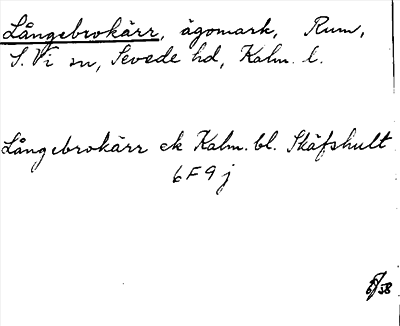 Långebrokärr, ägomark, Rum,
S. Vi sn, Sevede hd, Kalm. l.
Långebrokärr ek Kalm. bl. Skäfshult
6F9j